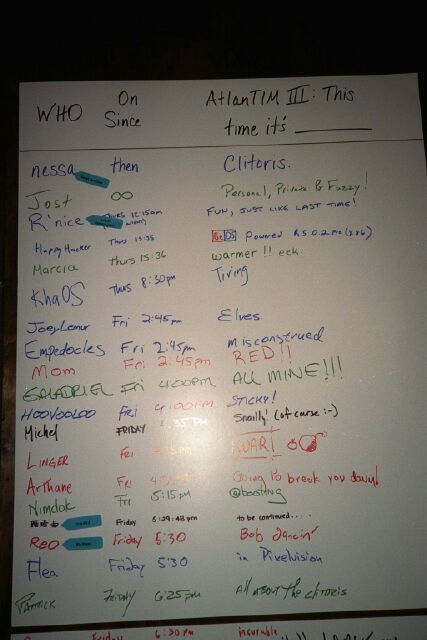 WHO On Since AtlanTIM III: This time it's ________
nessa then Clitoris.
Jost ∞ Personal, Private & Fuzzy!
R'nice 12:15am FUN, JUST LIKE LAST TIME!
Happy Hacker Thurs Be OS Powered R5 0.2
Marcia Thurs 15:36 warmer!! eek.
KhaOS Thurs 8:30pm Tiring
JoeyLemur Fri 2:45pm Elves
Empedocles Fri 2:45pm misconstrued
Mom Fri 2:45pm RED!!
GALADRIEL Fri 4:00PM ALL MINE!!!
HOOVOOLOO Fri 4:00PM STICKY!
Michel FRIDAY Snailly! (of course :-)
LINGER Fri WAR!
Arthane Fri Going to break you down!
Nimdok Fri 5:15pm @boasting
Friday 5:29:43 pm to be continued....
RED Friday 5:30 Bob dancin'
Flea Friday 5:30 in Pixelvision
PATRICK FRIDAY 6:25pm All about the clitoris
Friday 6:30pm incurable